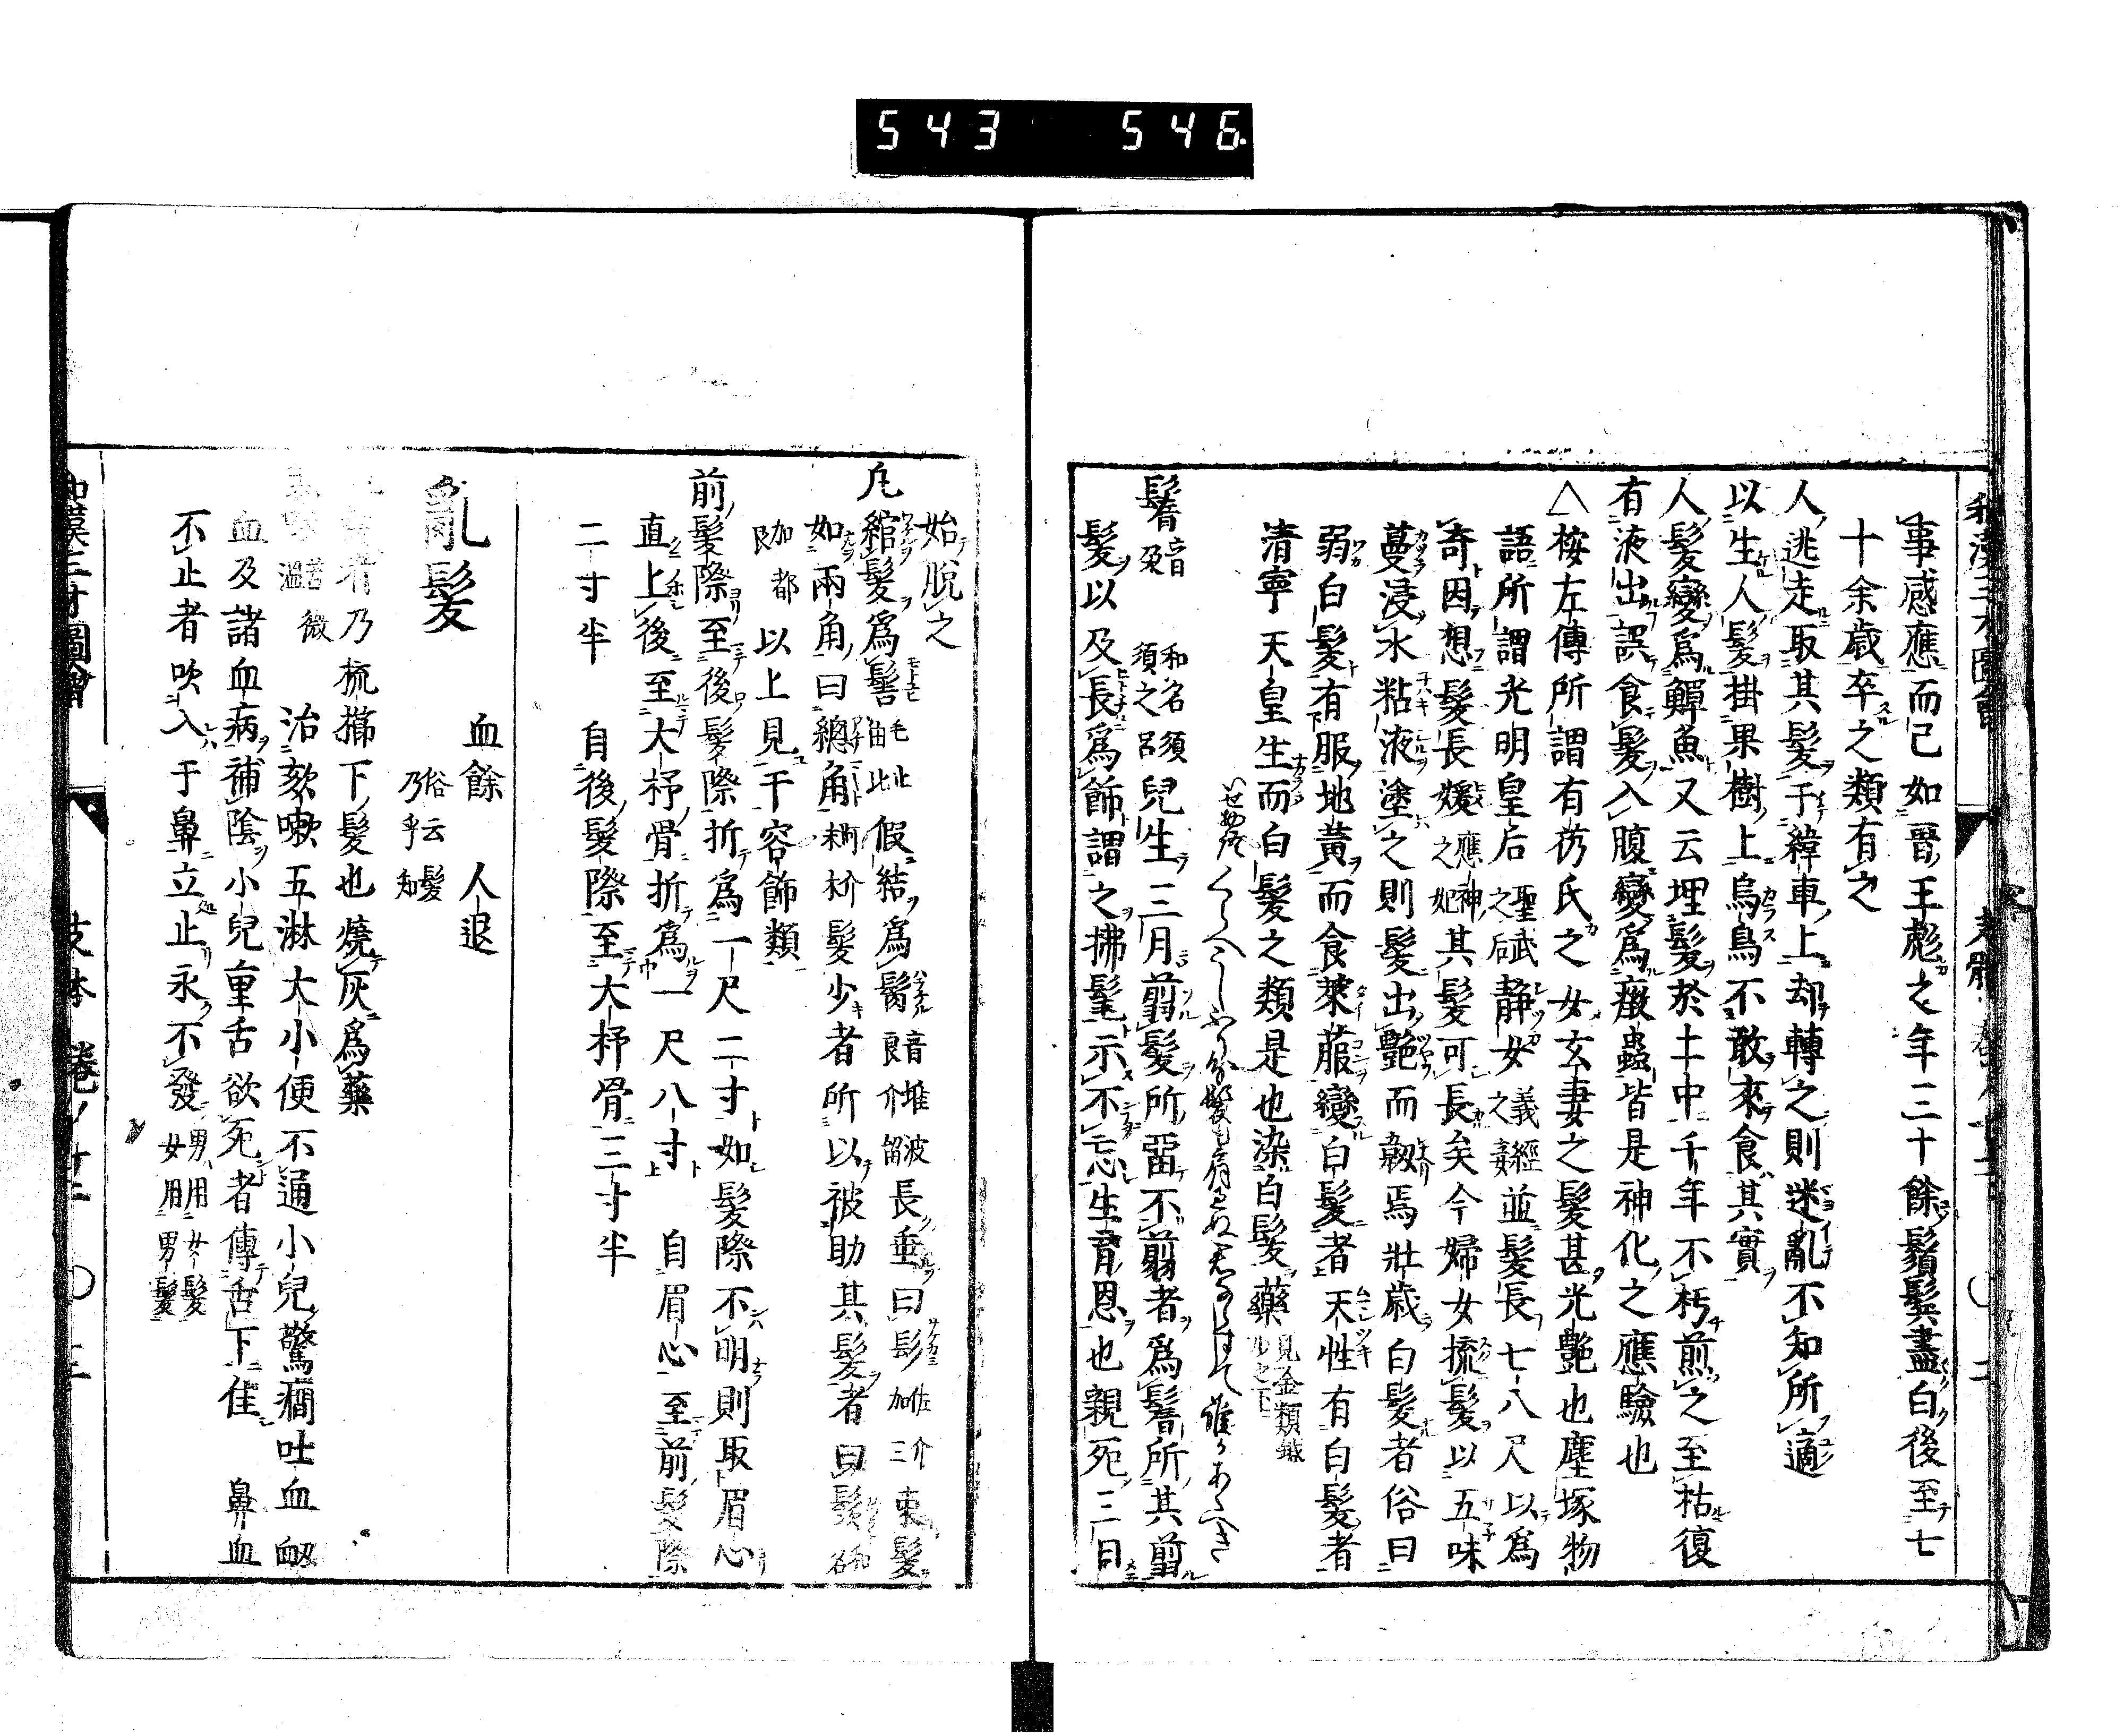 543 546
事感應而已如晋王彪之年三十餘鬚鬂盡白後至七
十余歳卒之類有之
人逃走取其髮于緯車上却轉之則迷亂不知所適
以生人髮掛果樹上烏鳥不敢來食其實
人髮變爲鱓魚又云埋髮於土中千年不朽煎之至枯復
有液出誤食髮入腹變爲癥蟲皆是神化之應驗也
△桉左傳所謂有仍氏之女玄妻之髮甚光艶也塵塚物
語所謂光明皇后聖武之后静女義經之妾並髮長七八尺以爲
奇因想髮長媛應神之妃其髮可長矣今婦女梳髮以五味
蔓浸水粘液塗之則髮出艶而靱焉壯歳白髮者俗曰
弱白髮有服地黃而食萊菔變白髮者天性有白髮者
清寧天皇生而白髮之類是也染白髮藥見金類鍼
鬌音朶 和名須須之呂 兒生三月剪髮所畱不剪者爲鬌所其剪
髮以及長爲飾謂之拂髦示不忘生育恩也親死三日
始脫之
凡綰髮爲髻毛止由比假結爲鬌長垂曰髟束髮
如兩角曰總角髮少者所以被助其髮者曰髲
加都良 以上見干容飾類
前髮際至後髮際折爲一尺二寸如髮際不明則取眉心
直上後至大杼骨折爲一尺八寸 自眉心至前髮際
二寸半 自後髮際至大杼骨三寸半
亂髮 血餘 人退
俗云髮乃乎知
者乃梳櫛下髮也燒灰爲藥
苦微溫 治欬嗽五淋大小便不通小兒驚癇吐血衂
血及諸血病補陰小兒重舌欲死者傳舌下佳 鼻血
不止者吹入于鼻立止永不發男用女髮女用男髮
和漢三才圖會 支体 卷ノ十二 〇 三